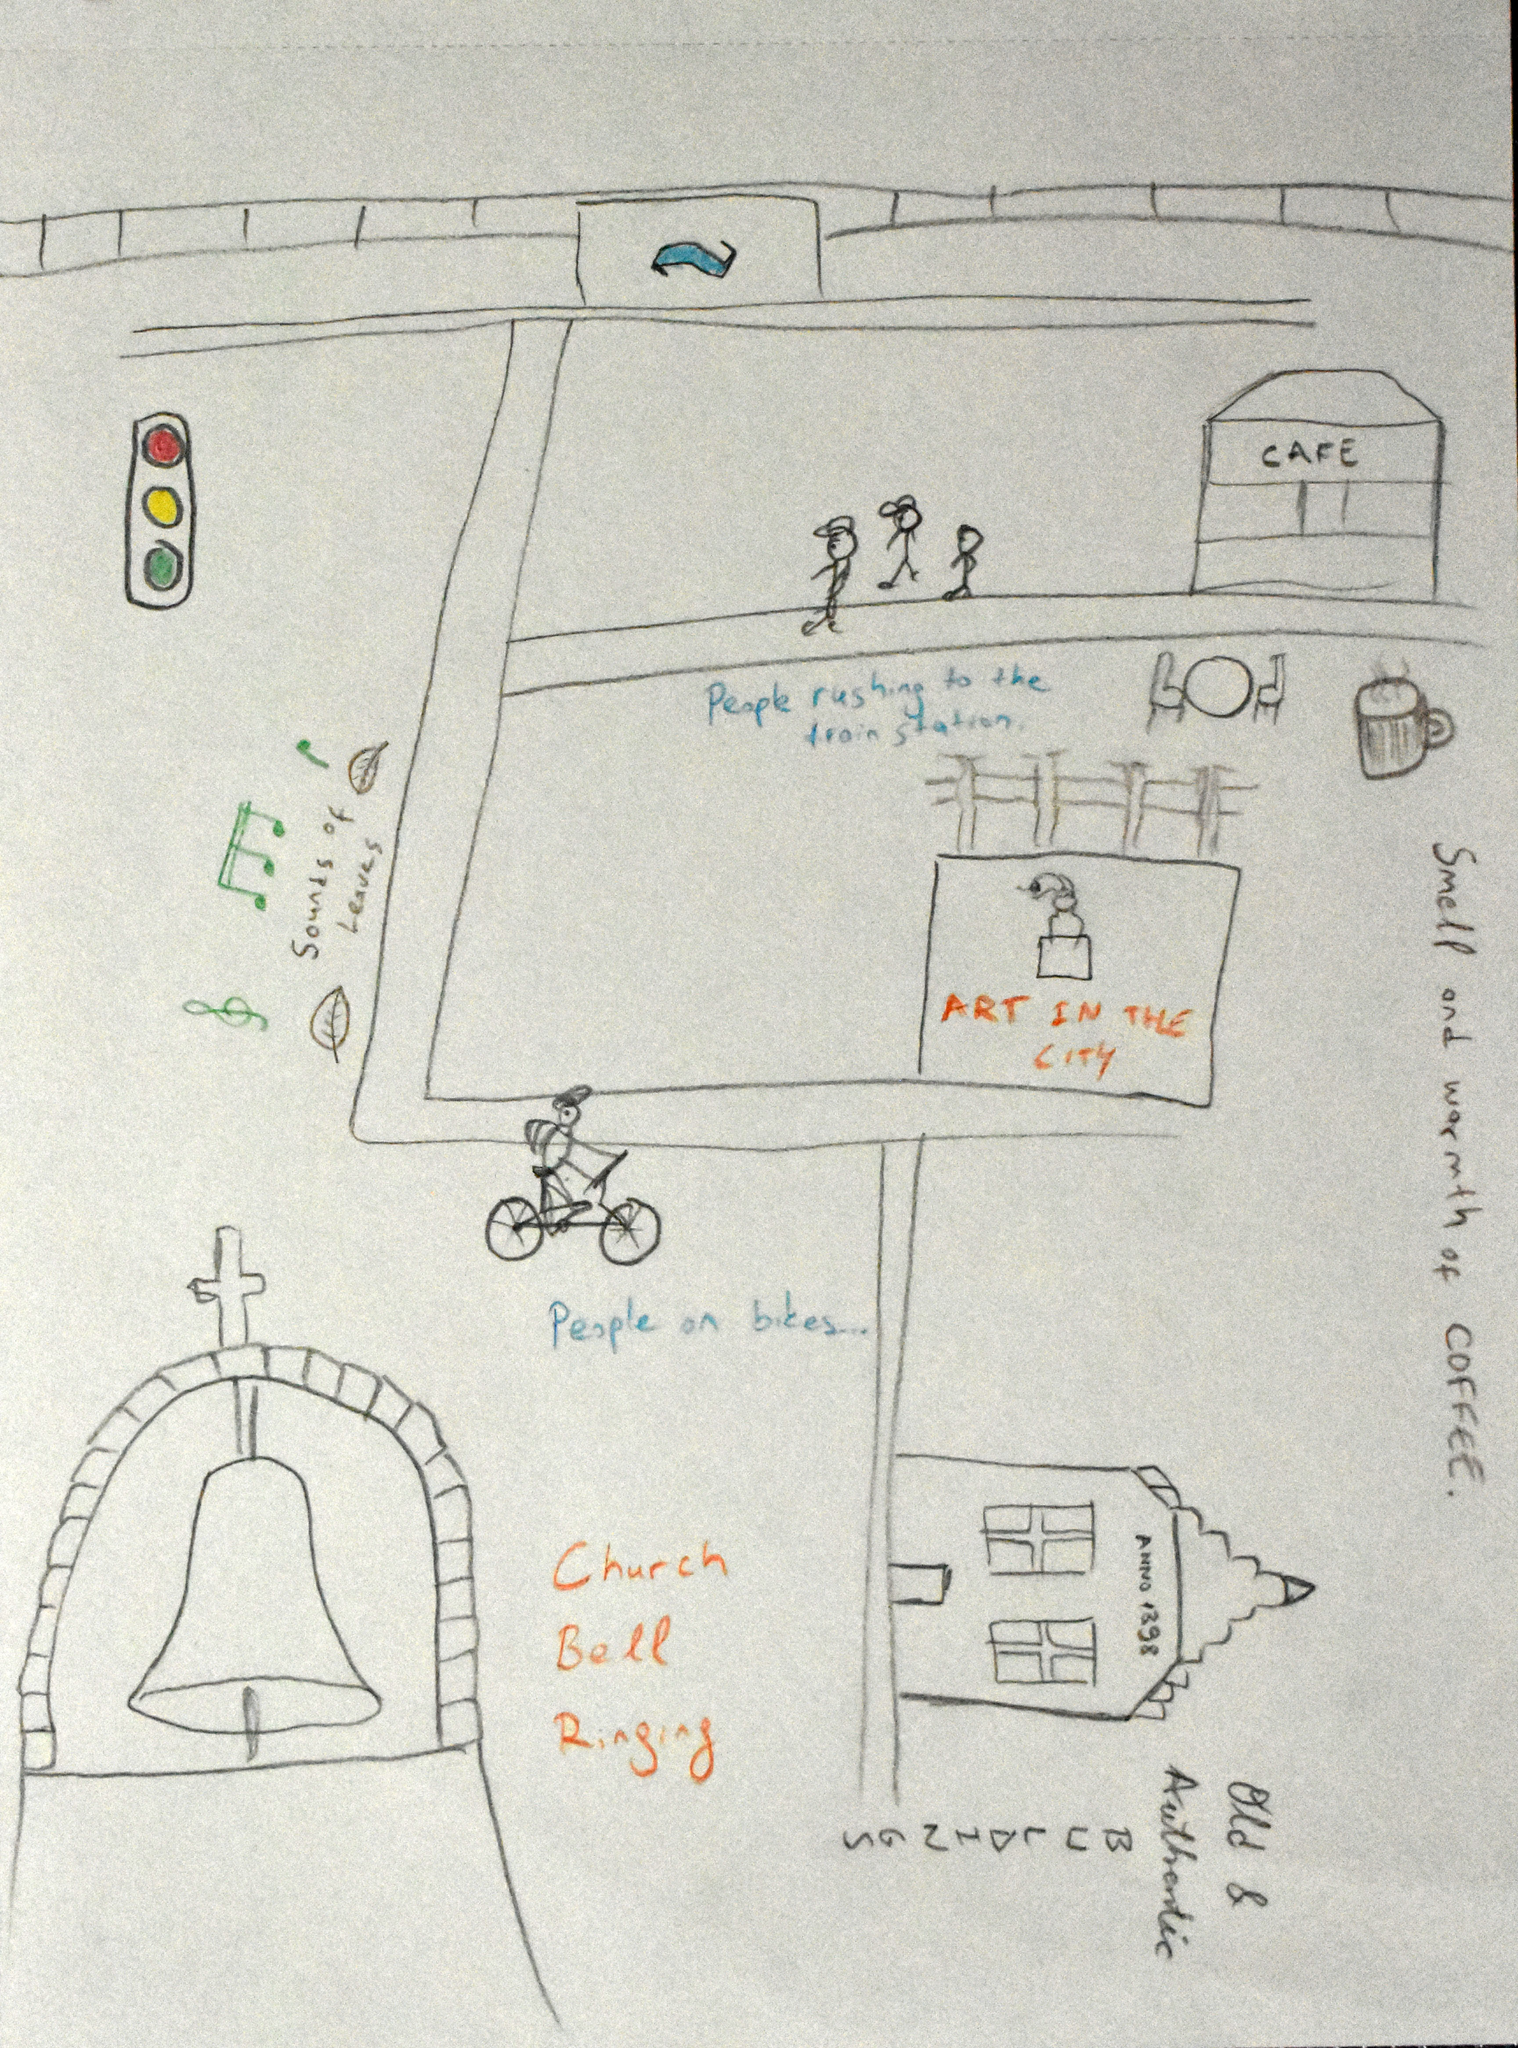 CAFE
People rushing to the
train station.
Sounds of
Leaves
ART IN THE
CITY
Smell and warmth of COFFEE.
People on bikes...
Church
Bell
Ringing
ANNO 1398
Old &
Authentic
BUILDINGS